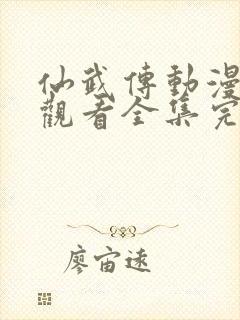 仙武傳動漫
觀看全集完
廖宙遠